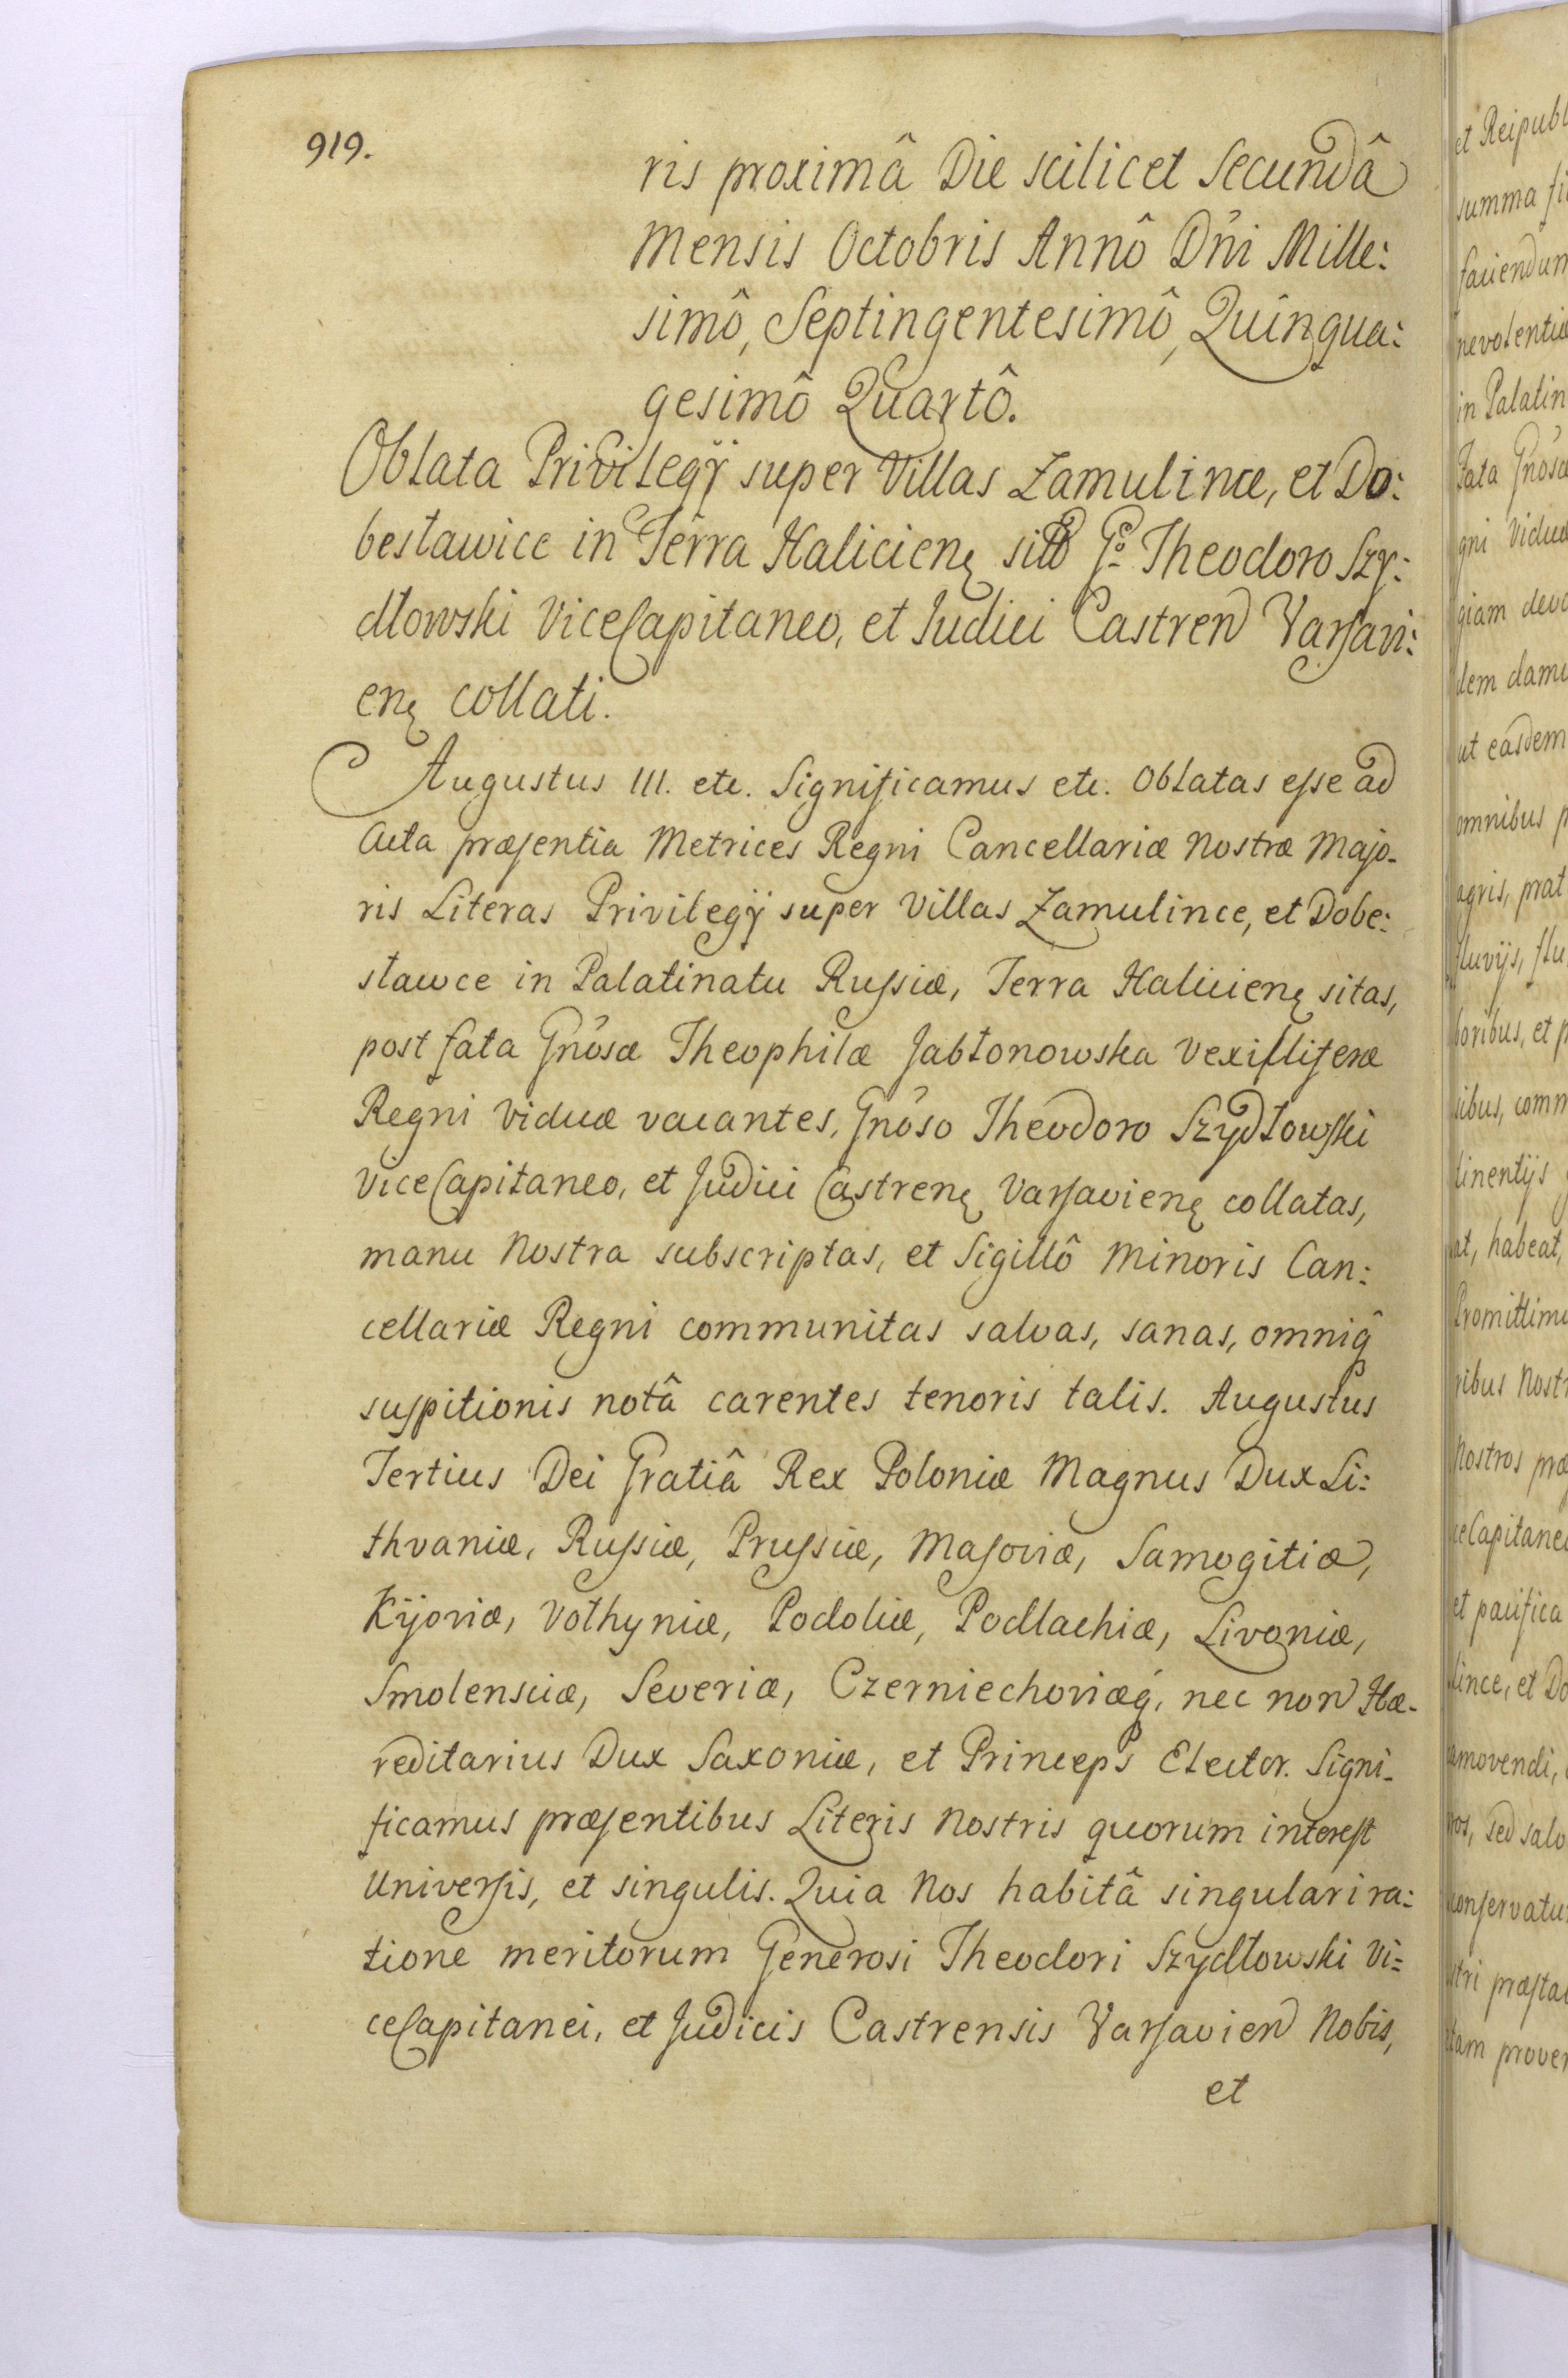 919.
ris proximâ Die scilicet Secundâ
Mensis Octobris Annô Dńi Mille:
simô, Septingentesimô, Quinqua:
gesimô Quartô.
Oblata Privilegÿ super Villas Zamulince, et Do:
besławice in Terra Halicienę sitas Gso Theodoro Szy:
dłowski ViceCapitaneo, et Judici Castren Varsavi:
enę collati.
Augustus III. etc. Significamus etc. Oblatas esse ad
Acta præsentia Metrices Regni Cancellariæ Nostræ Majo-
ris Literas Privilegÿ super Villas Zamulince, et Dobe:
sławce in Palatinatu Russiæ, Terra Halicienę sitas,
post fata Gńosæ Theophilæ Jabłonowska Vexilliferæ
Regni Viduæ vacantes, Gńoso Theodoro Szydłowski
ViceCapitaneo, et Judici Castrenę Varsavienę collatas,
manu Nostra subscriptas, et Sigillô Minoris Can:
cellariæ Regni communitas salvas, sanas, omniq̂
suspitionis notâ carentes tenoris talis. Augustus
Tertius Dei Gratiâ Rex Poloniæ Magnus Dux Li:
thvaniæ, Russiæ, Prussiæ, Masoviæ, Samogitiæ,
Kijoviæ, Vołhyniæ, Podoliæ, Podlachiæ, Livoniæ,
Smolensciæ, Severiæ, Czerniechoviæq́, nec non Hæ-
reditarius Dux Saxoniæ, et Princeps Elector. Signi-
ficamus præsentibus Literis Nostris quorum interest
Universis, et singulis. Quia Nos habitâ singulari ra:
tione meritorum Generosi Theodori Szydłowski Vi:
ceCapitanei, et Judicis Castrensis Varsavien Nobis,
et
et Reipubl
summa fi
faciendum
nevolentiæ
in Palatin
Fata Gńosæ
gni Viduæ
giam devo
dem damu
ut easdem
omnibus p
agris, prat
fluvÿs, flu
boribus, et p
sibus, comm
tinentÿs
at, habeat,
Promittimu
ribus Nostr
Nostros præ
ceCapitaneu
et pacifica
lince, et Do
amovendi,
ros, sed salv
conservatu
stri præsta
tam prover